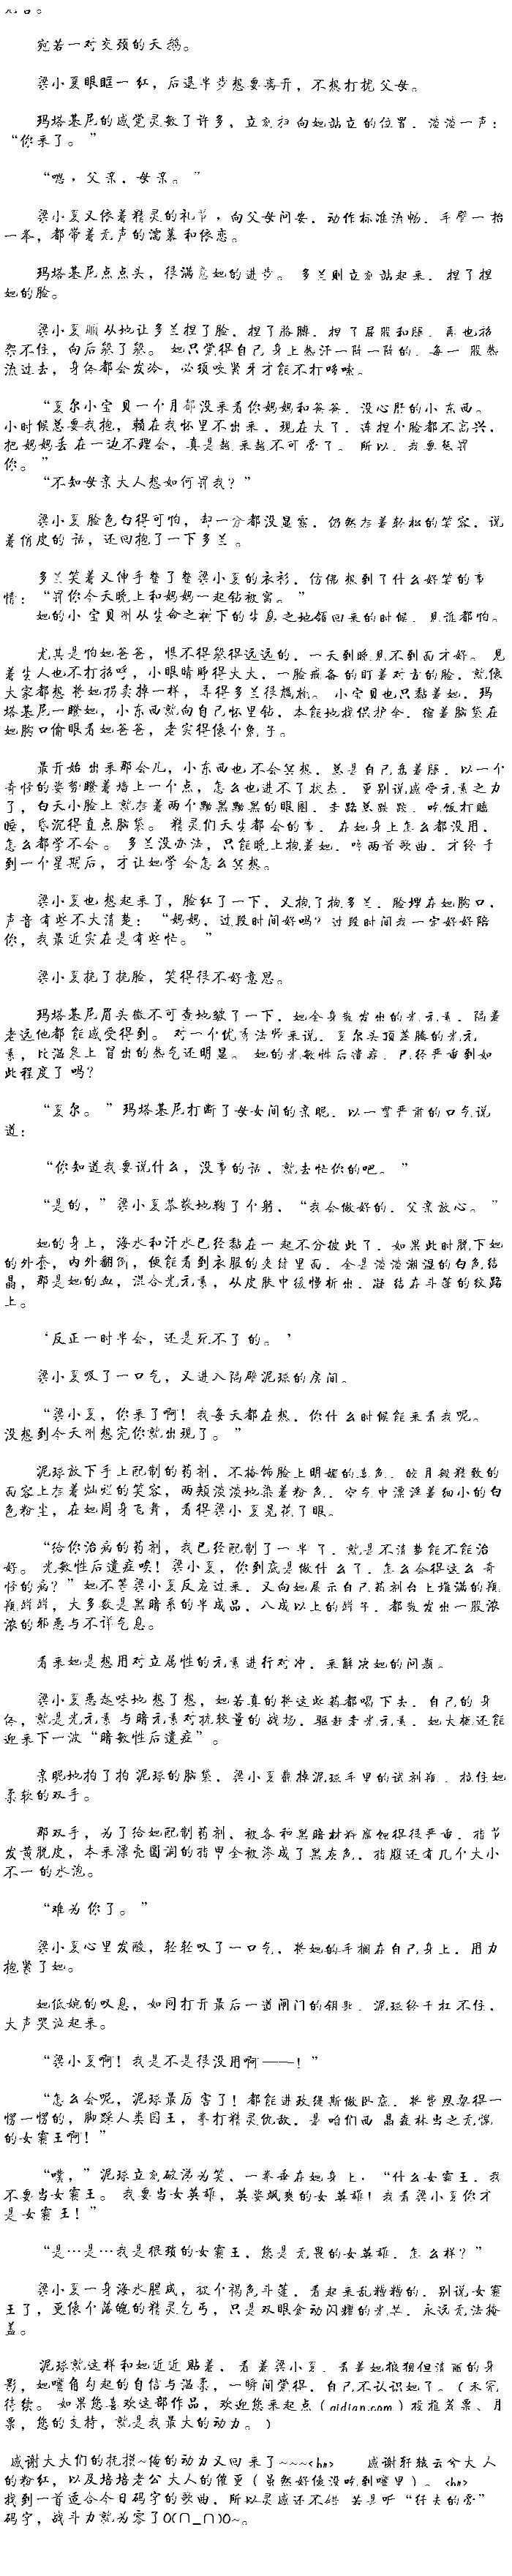 宛若一对交颈的天鹅。
梁小夏眼眶一红，后退半步想要离开，不想打扰父母。
玛塔基尼的感觉灵敏了许多，立刻扫向她站立的位置，淡淡一声：
“你来了。”
“嗯，父亲，母亲。”
梁小夏又依着精灵的礼节，向父母问安，动作标准流畅，手臂一抬
一举，都带着无声的濡慕和依恋。
玛塔基尼点点头，很满意她的进步。多兰则立刻站起来，捏了捏
她的脸。
梁小夏顺从地让多兰捏了脸，捏了胳膊，捏了屁股和腿，再也招
架不住，向后躲了躲。她只觉得自己身上热汗一阵一阵的，每一股热
流过去，身体都会发冷，必须咬紧牙才能不打哆嗦。
“夏尔小宝贝一个月都没来看你妈妈和爸爸，没心肝的小东西。
小时候总要我抱，赖在我怀里不出来，现在大了，连捏个脸都不高兴，
把妈妈丢在一边不理会，真是越来越不可爱了。所以，我要惩罚
你。”
“不知母亲大人想如何罚我？”
梁小夏脸色白得可怕，却一分都没显露，仍然存着轻松的笑容，说
着俏皮的话，还回抱了一下多兰。
多兰笑着又伸手整了整梁小夏的衣衫，仿佛想到了什么好笑的事
情：“罚你今天晚上和妈妈一起钻被窝。”
她的小宝贝刚从生命之树下的生息之地领回来的时候，见谁都怕。
尤其是怕她爸爸，恨不得躲得远远的，一天到晚见不到面才好。见
着生人也不打招呼，小眼睛瞪得大大，一脸戒备的盯着对方的脸，就像
大家都想将她拐卖掉一样，弄得多兰很尴尬。小宝贝也只黏着她，玛
塔基尼一瞪她，小东西就向自己怀里钻，本能地找保护伞，缩着脑袋在
她胸口偷眼看她爸爸，老实得像个兔子。
最开始出来那会儿，小东西也不会冥想，总是自己盘着腿，以一个
奇怪的姿势瞪着墙上一个点，怎么也进不了状态，更别说感受元素之力
了，白天小脸上就存着两个黝黑黝黑的眼圈，走路总跌跌，吃饭打瞌
睡，昏沉得直点脑袋。精灵们天生都会的事，在她身上怎么都没用，
怎么都学不会。多兰没办法，只能晚上抱着她，哼两首歌曲，才终于
到一个星期后，才让她学会怎么冥想。
梁小夏也想起来了，脸红了一下，又抱了抱多兰，脸埋在她胸口，
声音有些不大清楚：“妈妈，过段时间好吗？过段时间我一定好好陪
你，我最近实在是有些忙。”
梁小夏挠了挠脸，笑得很不好意思。
玛塔基尼眉头微不可查地皱了一下，她全身散发出的光元素，隔着
老远他都能感受得到。对一个优秀法师来说，夏尔头顶蒸腾的光元
素，比温泉上冒出的热气还明显。她的光敏性后遗症，已经严重到如
此程度了吗？
“夏尔。”玛塔基尼打断了母女间的亲昵，以一贯严肃的口气说
道：
“你知道我要说什么，没事的话，就去忙你的吧。”
“是的，”梁小夏恭敬地鞠了个躬，“我会做好的，父亲放心。”
她的身上，海水和汗水已经黏在一起不分彼此了，如果此时脱下她
的外套，内外翻倒，便能看到衣服的夹缝里面，全是淡淡潮湿的白色结
晶，那是她的血，混合光元素，从皮肤中缓慢析出，凝结在斗篷的纹路
上。
‘反正一时半会，还是死不了的。’
梁小夏吸了一口气，又进入隔壁泥球的房间。
“梁小夏，你来了啊！我每天都在想，你什么时候能来看我呢。
没想到今天刚想完你就出现了。”
泥球放下手上配制的药剂，不掩饰脸上明媚的喜色，皎月般精致的
面容上存着灿烂的笑容，两颊淡淡地染着粉色，空气中漂浮着细小的白
色粉尘，在她周身飞舞，看得梁小夏晃花了眼。
“给你治病的药剂，我已经配制了一半了，就是不清楚能不能治
好。光敏性后遗症唉！梁小夏，你到底是做什么了，怎么会得这么奇
怪的病？”她不等梁小夏反应过来，又向她展示自己药剂台上堆满的瓶
瓶罐罐，大多数是黑暗系的半成品，八成以上的罐子，都散发出一股浓
浓的邪恶与不祥气息。
看来她是想用对立属性的元素进行对冲，来解决她的问题。
梁小夏恶趣味地想了想，她若真的将这些药都喝下去，自己的身
体，就是光元素与暗元素对抗较量的战场，驱赶走光元素，她大概还能
迎来下一波“暗敏性后遗症”。
亲昵地拍了拍泥球的脑袋，梁小夏拿掉泥球手里的试剂瓶，拉住她
柔软的双手。
那双手，为了给她配制药剂，被各种黑暗材料腐蚀得很严重，指节
发黄脱皮，本来漂亮圆润的指甲全被渗成了黑灰色，指腹还有几个大小
不一的水泡。
“难为你了。”
梁小夏心里发酸，轻轻叹了一口气，将她的手搁在自己身上，用力
抱紧了她。
她低婉的叹息，如同打开最后一道闸门的钥匙，泥球终于扛不住，
大声哭泣起来。
“梁小夏啊！我是不是很没用啊——！”
“怎么会呢，泥球最厉害了！都能进玫缇斯做卧底，将费恩忽得一
愣一愣的，脚踩人类国王，拳打精灵仇敌，是咱们西晶森林当之无愧
的女霸王啊！”
“噗，”泥球立刻破涕为笑，一拳垂在她身上，“什么女霸王，我
不要当女霸王。我要当女英雄，英姿飒爽的女英雄！我看梁小夏你才
是女霸王！”
“是…是…我是狠戾的女霸王，您是无畏的女英雄，怎么样？”
梁小夏一身海水腥咸，披个褐色斗篷，看起来乱糟糟的，别说女霸
王了，更像个落魄的精灵乞丐，只是双眼金动闪耀的光芒，永远无法掩
盖。
泥球就这样和她近近贴着，看着梁小夏，看着她狼狈但清丽的身
影，她嘴角勾起的自信与温柔，一瞬间觉得，自己不认识她了。（未完
待续。如果您喜欢这部作品，欢迎您来起点（qidian.com）投推荐票、月
票，您的支持，就是我最大的动力。）
感谢大大们的抚摸~俺的动力又回来了~~~<hr>　　感谢轩辕云兮大人
的粉红，以及培培老公大人的催更（虽然好像没吃到嘴里）。<hr>
找到一首适合今日码字的歌曲，所以灵感还不错，若是听“纤夫的爱”
码字，战斗力就为零了O(∩_∩)O~。